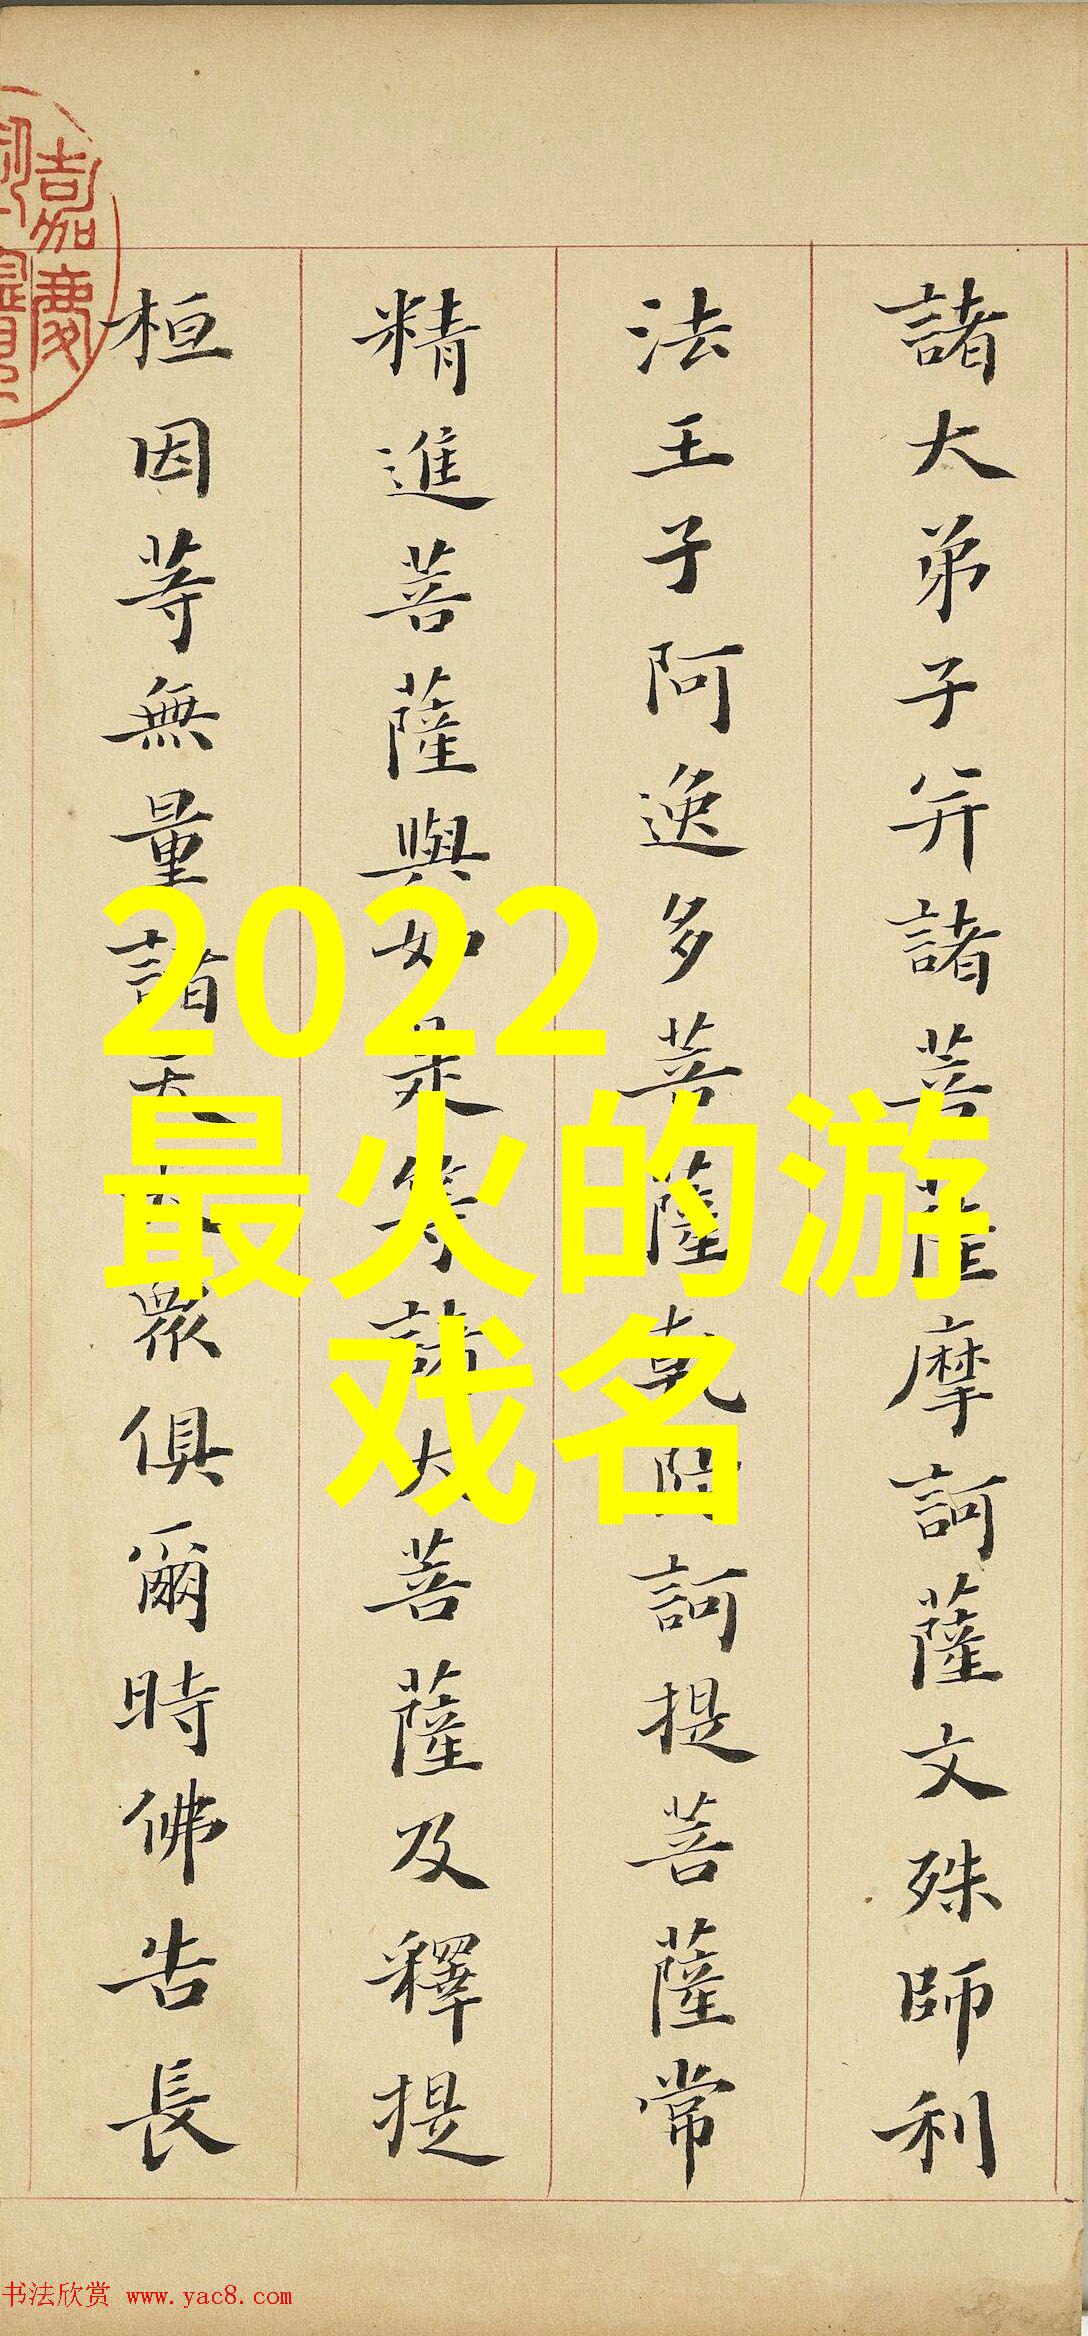 諸大弟子并諸菩薩摩訶薩文殊師利
法王子阿逸多菩薩乾陀訶提菩薩常
精進菩薩與如是等諸大菩薩及釋提
桓因等無量諸天大眾俱爾時佛告長
嘉慶
2022
最火的游
戏名
书法欣赏 www.yac8.com